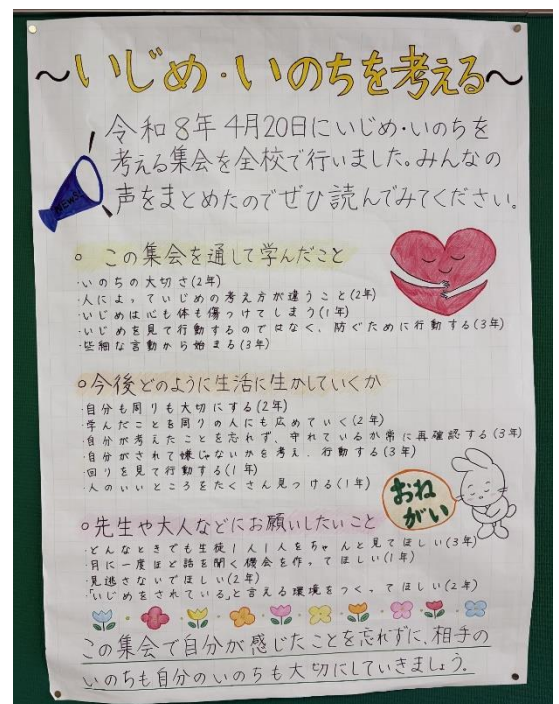 ～いじめ・いのちを考える～
令和8年4月20日にいじめ・いのちを
考える集会を全校で行いました。みんなの
声をまとめたのでぜひ読んでみてください。
NEWS!
○この集会を通して学んだこと
・いのちの大切さ(2年)
・人によっていじめの考え方が違うこと(2年)
・いじめは心も体も傷つけてしまう(1年)
・いじめを見て行動するのではなく、防ぐために行動する(3年)
・些細な言動から始まる(3年)
○今後どのように生活に生かしていくか
・自分も周りも大切にする(2年)
・学んだことを周りの人にも広めていく(2年)
・自分が考えたことを忘れず、守れているか常に再確認する(3年)
・自分がされて嫌じゃないかを考え、行動する(3年)
・回りを見て行動する(1年)
・人のいいところをたくさん見つける(1年)
おね
がい
○先生や大人などにお願いしたいこと
・どんなときでも生徒1人1人をちゃんと見てほしい(3年)
・月に一度ほど話を聞く機会を作ってほしい(1年)
・見逃さないでほしい(2年)
・「いじめをされている」と言える環境をつくってほしい(2年)
この集会で自分が感じたことを忘れずに、相手の
いのちも自分のいのちも大切にしていきましょう。